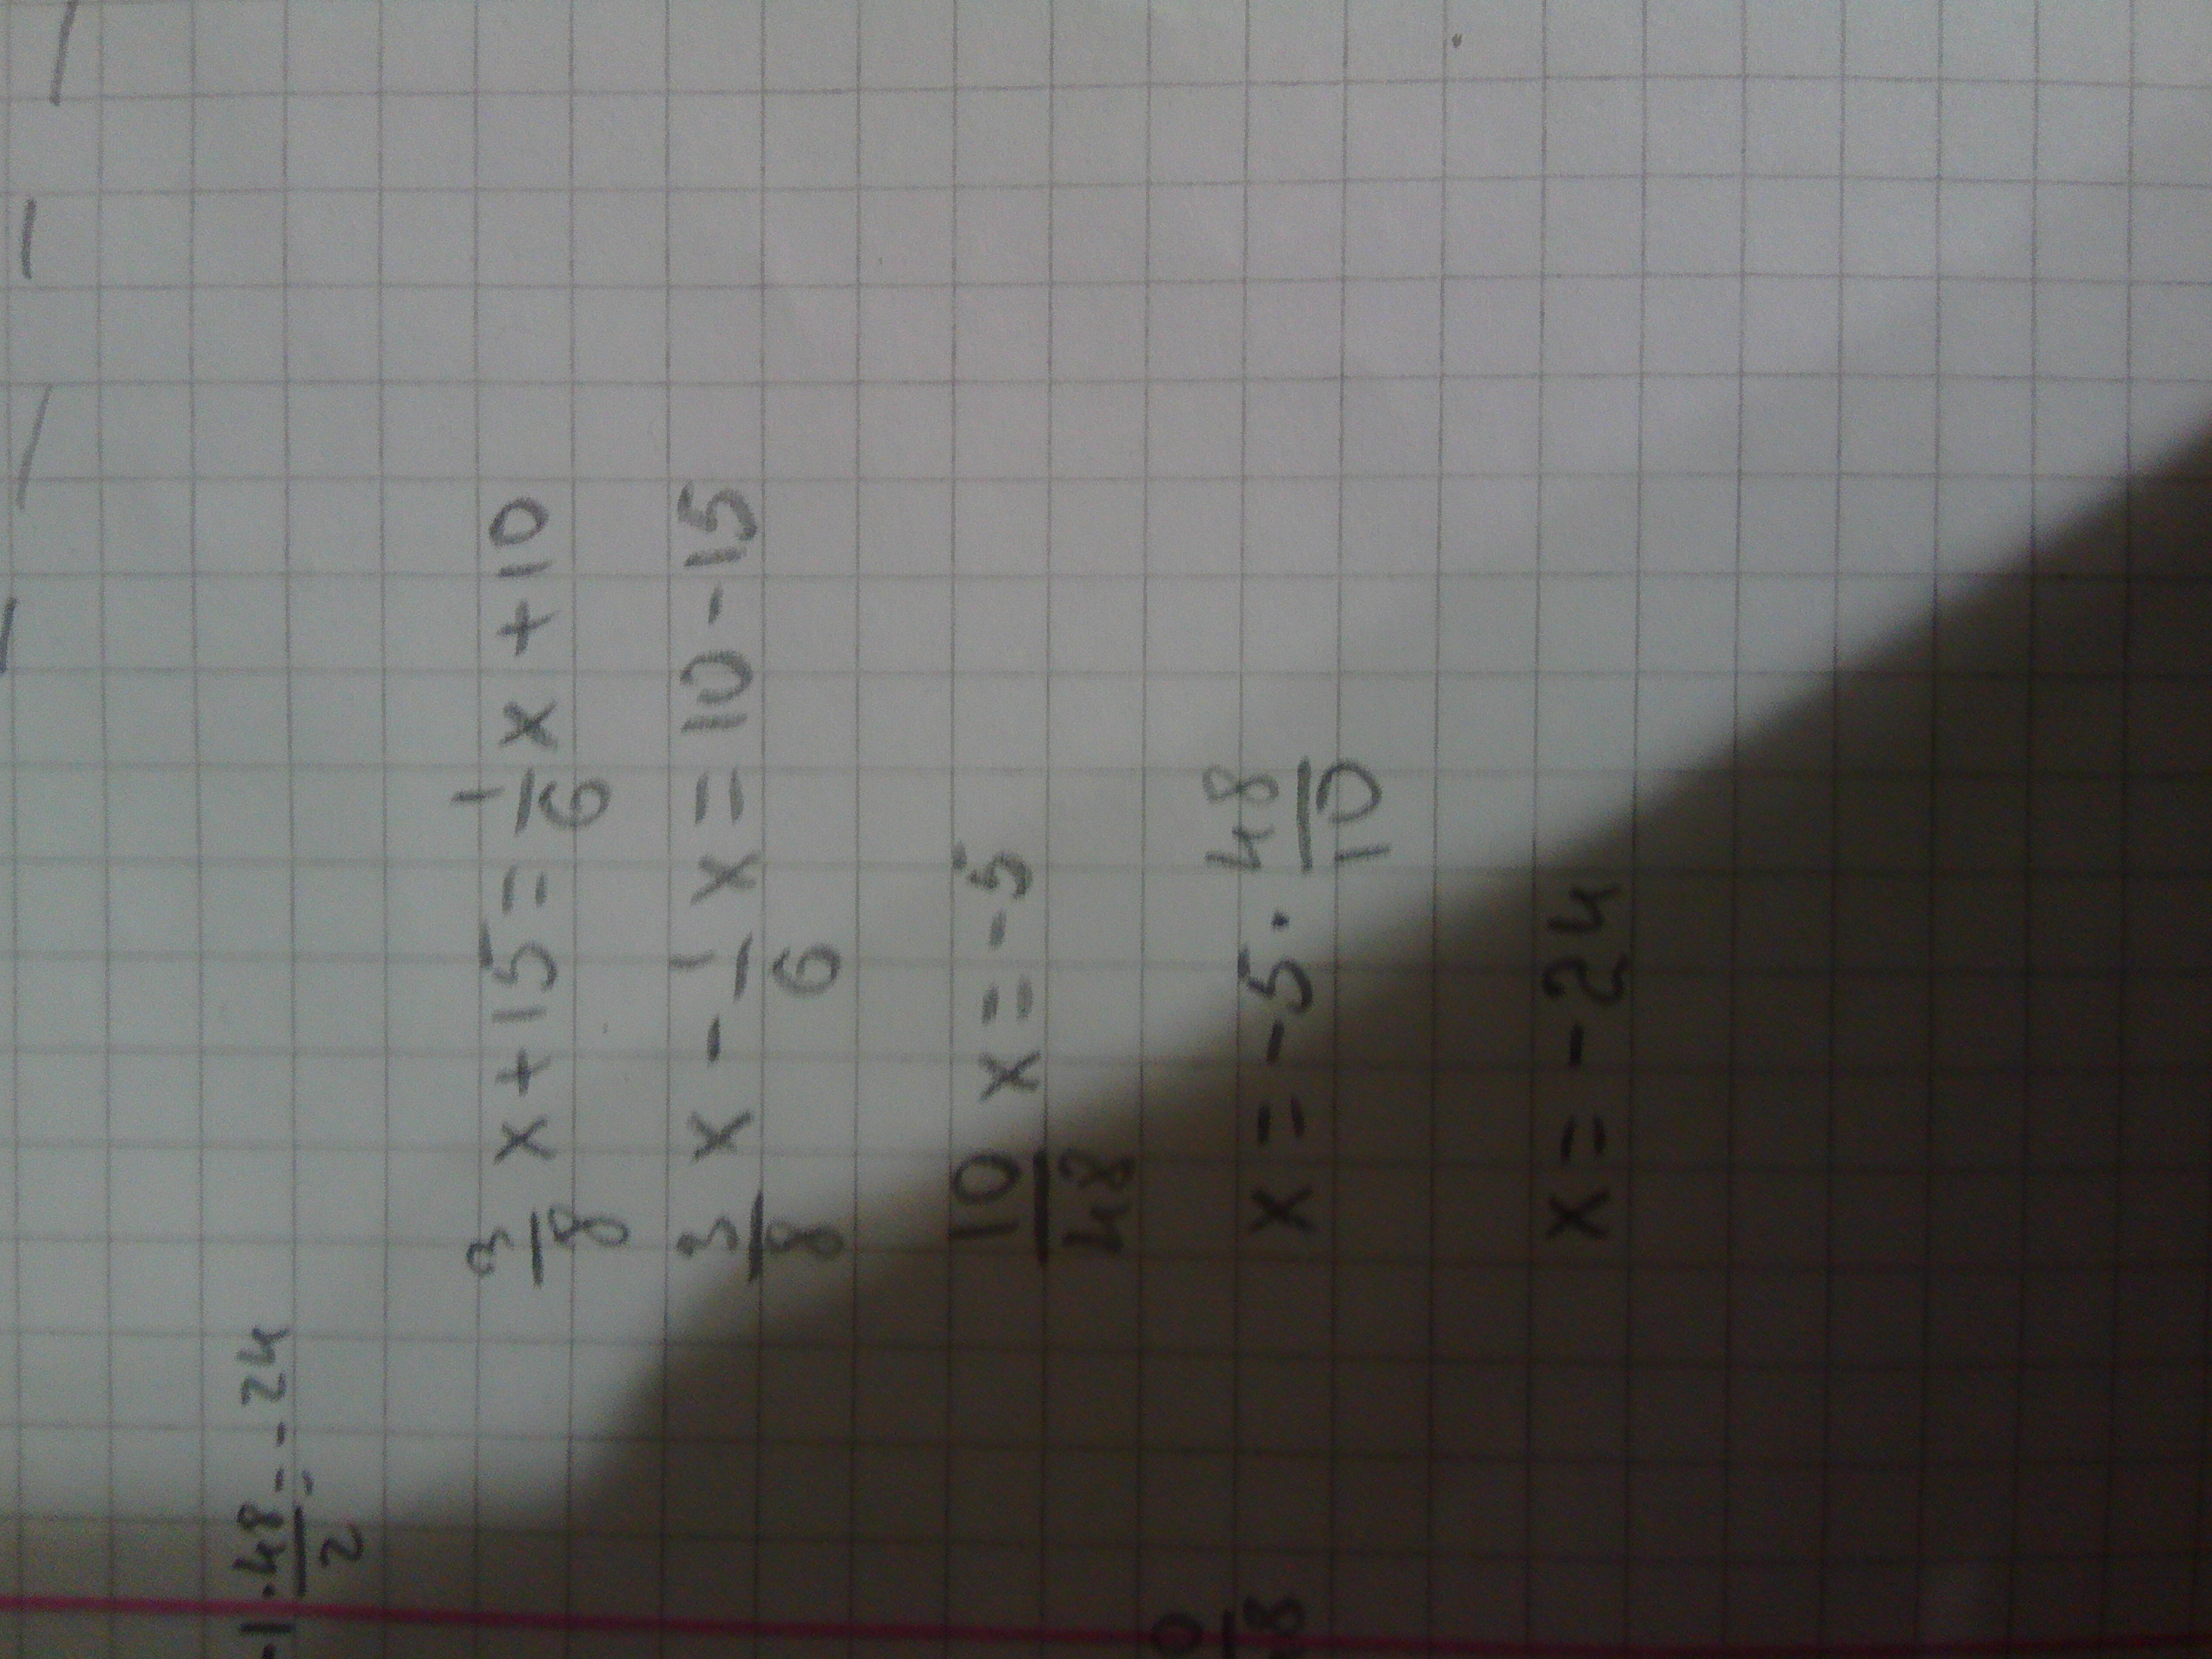 -1·48/2 = -24
3/8 x + 15 = 1/6 x + 10
3/8 x - 1/6 x = 10 - 15
10/48 x = -5
x = -5 · 48/10
x = -24